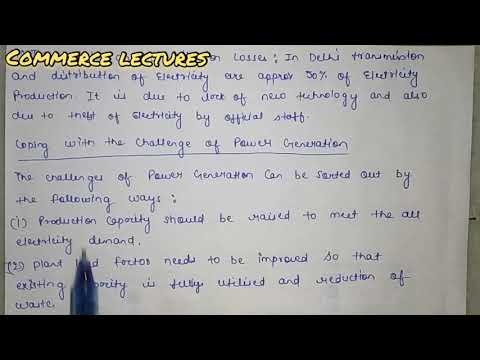 COMMERCE LECTURES
on Losses : In Delhi transmission
and distribution of Electricity are approx 50% of Electricity
Production. It is due to lack of new technology and also
due to theft of Electricity by official staff.
Coping with the Challenge of Power Generation
The challenges of Power Generation Can be Sorted out by
the following ways :
(1) Production Capacity should be raised to meet the all
electricity demand.
(2) Plant factor needs to be improved so that
existing is fully utilised and reduction of
waste.